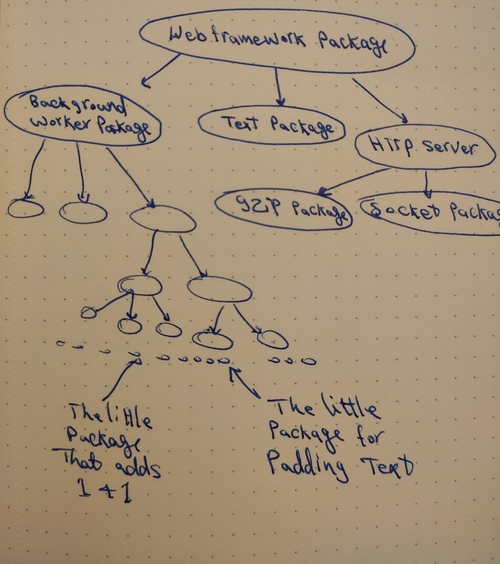 Web framework Package
Background
Worker Package
Text Package
HTTP Server
gZIP Package
Socket Package
The little
Package
That adds
1 + 1
The little
Package for
Padding Text